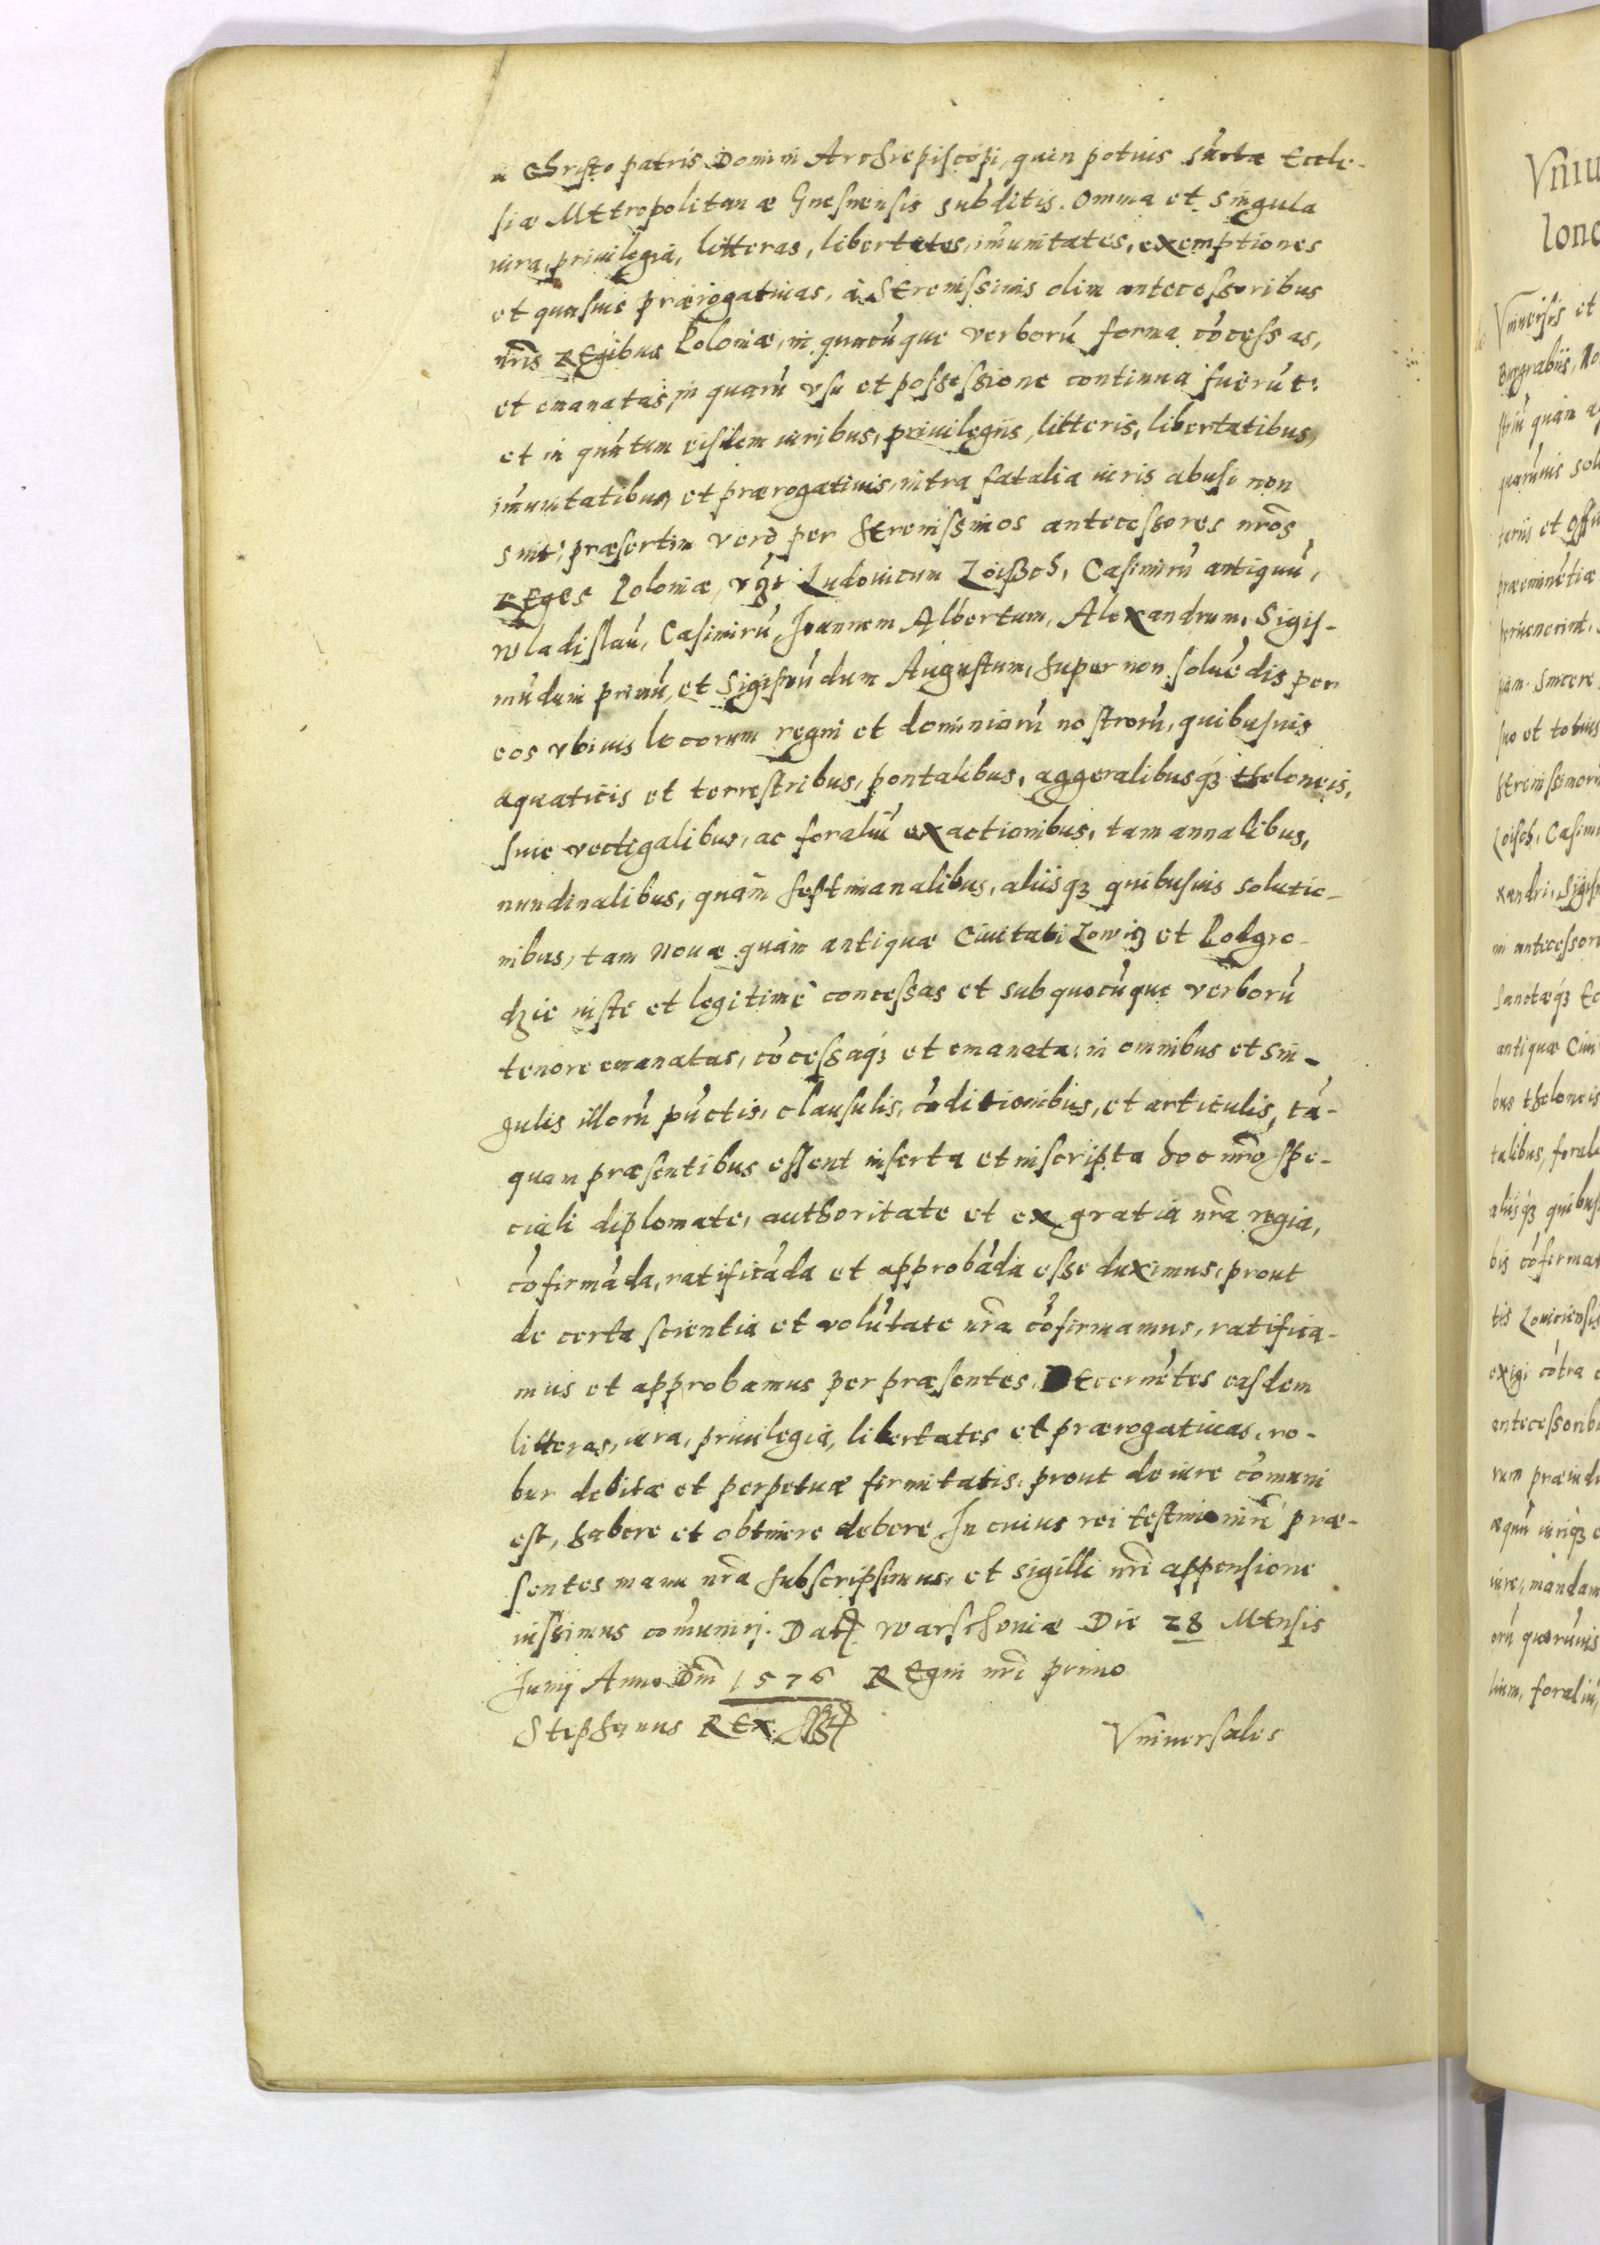 n Christo patris Domini Archiepiscopi, quin potius sũctæ Eccle-
siæ Mttropolitanæ Gnesnensis subditis. Omnia et singula
iura, priuilegia, litteras, libertates, im̃unitates, exemptiones
et quasuis prærogatiuas, à Serenissimis olim antecessoribus
nr̃is REgibus Poloniæ, in quacũque verborũ forma cõcessas,
et emanatas, in quarũ vsu et possessione continua fuerũt:
et in quãtum eisdem iuribus, priuilegiis, litteris, libertatibus,
im̃unitatibus, et prærogatiuis, intra fatalia iuris abusi non
sint, præsertim verò per Serenissimos antecessores nrõs
REges Poloniæ, vgt Ludouicum Loißch, Casimirũ antiquũ,
Wladislaũ, Casimirũ, Joannem Albertum, Alexandrum, Sigis-
mũdum primũ, et Sigismũdum Augustum, super non soluẽdis per
eos vbiuis locorum regni et dominiorũ nostrorũ, quibusuis
aquaticis et terrestribus, pontalibus, aggeralibusq́ꝫ theloneis,
siue vectigalibus, ac foraliũ exactionibus, tam annalibus,
nundinalibus, quàm septimanalibus, aliisqꝫ quibusuis solutio-
nibus, tam nouæ quàm antiquæ Ciuitati Lowiꝫ et Podgro-
dzie iuste et legitime concessas et sub quocũque verborũ
tenore emanatas, cõcessaq́ꝫ et emanata, in omnibus et sin-
gulis illorũ pũctis, clausulis, cõditionibus, et articulis, tã-
quam præsentibus essent inserta et inscripta hoc nrõ spe-
ciali diplomate, authoritate et ex gratia nrã regia,
cõfirmãda, ratificãda et approbãda esse duximus, prout
de certa scientia et volũtate nrã cõfirmamus, ratifica-
mus et approbamus per præsentes. DEcernẽtes easdem
litteras, iura, priuilegia, libertates et prærogatiuas, ro-
bur debitæ et perpetuæ firmitatis, prout de iure com̃uni
est, habere et obtinere debere. In cuius rei testimoniũ præ-
sentes manu nrã subscripsimus, et sigilli nrĩ appensione
iussimus com̃uniri. Dat. Warschouiæ Die 28 MEnsis
Junij Anno Dñi 1576 REgni nrĩ primo
Stephanus REx. sst
Vniuersales
Vniu
lone
Vniuersis et
Burgrabiis, No
quàm a
quarũuis sol
tariis et Offi
præeminẽtiæ
peruenerint,
sincere
suo et totius
Serenissimorũ
Loisch, Casimi
xandri, Sigis
in antecessor
Sanctæq́ꝫ Ec
antiquæ Ciui
bus theloneis
talibus, forali
aliisq́ꝫ quibus
bis cõfirmat
tis Louiciensis
exigi cõtra
antecessorib
rum præiudi
æquũ iuriqꝫ
iure, mandam
orũ quarũuis
lium, foraliũ,